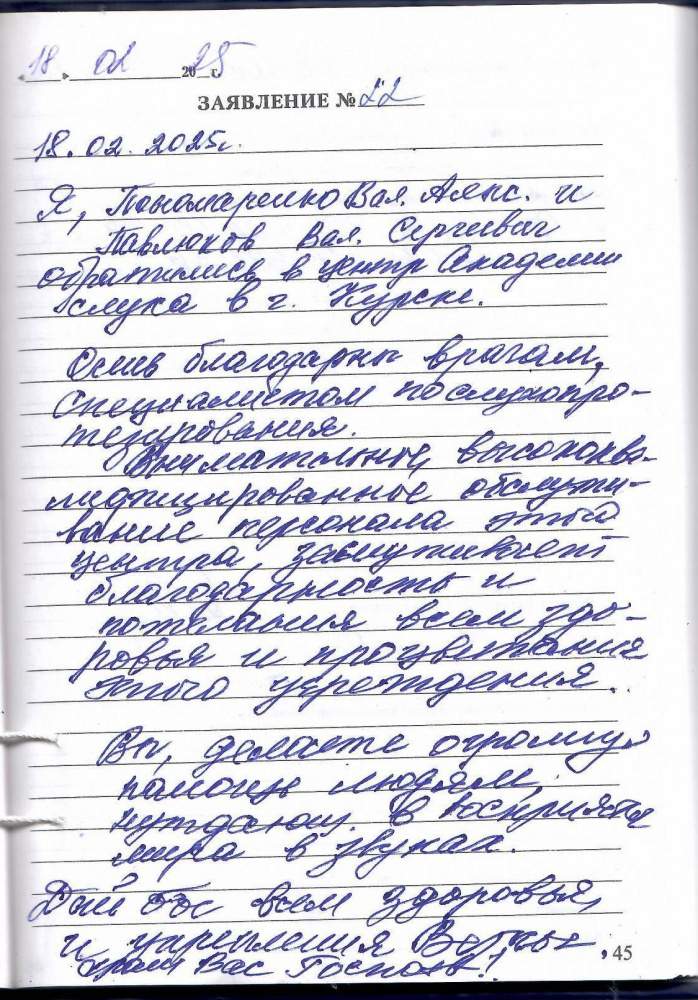 "18" 02 2025 г.
ЗАЯВЛЕНИЕ № 22
18.02.2025г.
Я, Пономаренко Вал. Алекс. и
Павлюков Вал. Сергеевич
обратились в центр Академии
слуха в г. Курске.
Очень благодарны врачам,
специалистам по слухопро-
тезирования.
Внимательное, высококва-
лифицированное обслужи-
вание персонала этого
центра, заслуживает
благодарность и
пожелания всем здо-
ровья и процветания
этого учреждения.
Вы, делаете огромную
помощь людям,
нуждающ. в восприятия
мира в звуках.
Дай Бог всем здоровья,
и укрепления
храни Вас Господь!
45